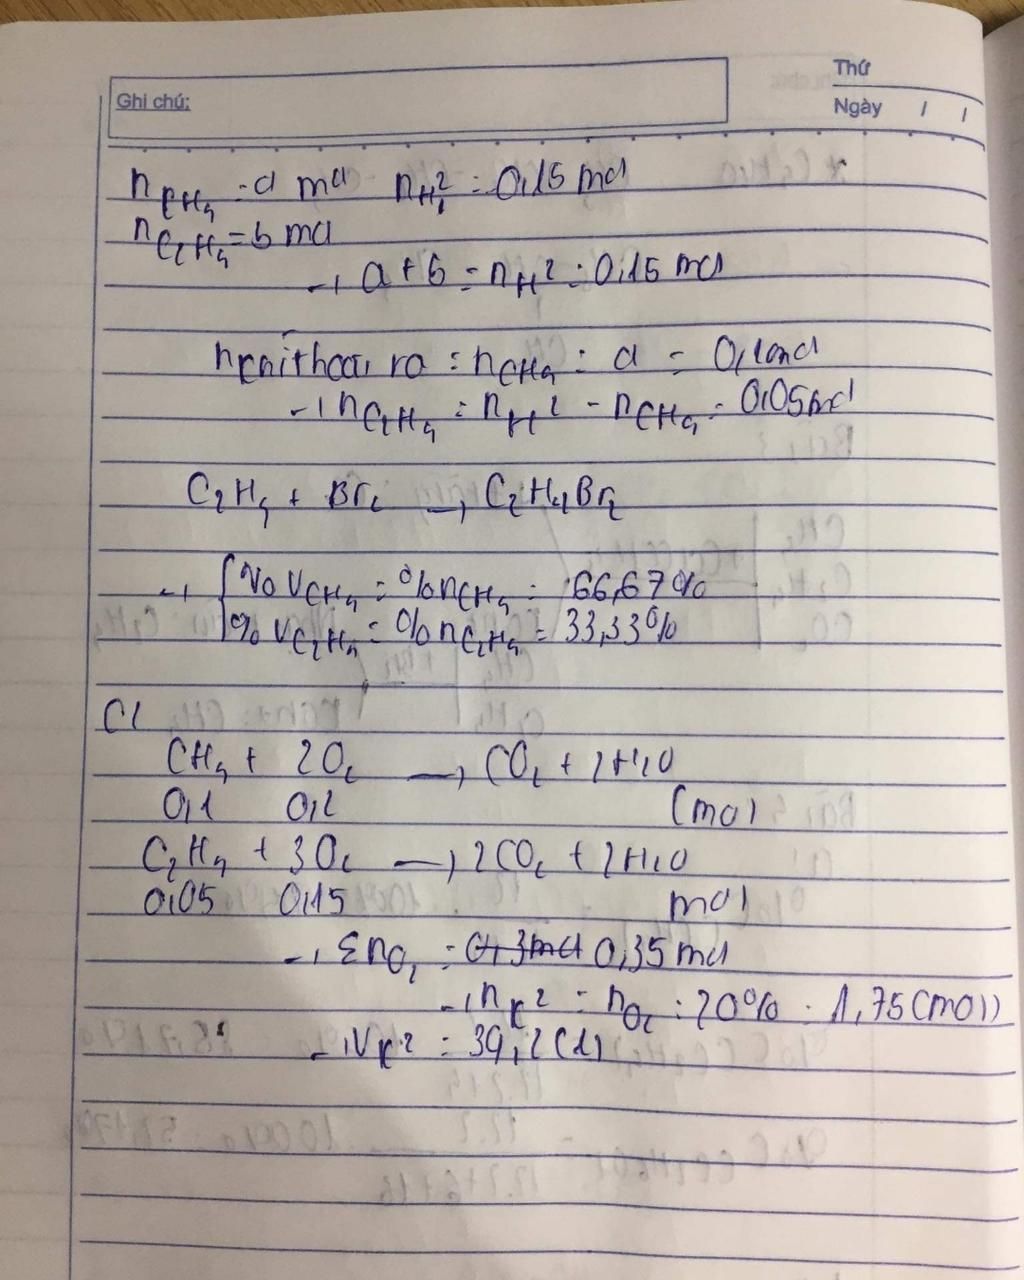 Thứ
Ghi chú:
Ngày / /
n CH4 = a mol n H2 = 0,15 mol
n C2H4 = b mol
→ a + b = n H2 = 0,15 mol
n khí thoát ra = n CH4 = a = 0,1 mol
→ n C2H4 = n H2 - n CH4 = 0,05 mol
C2H4 + Br2 → C2H4Br2
→ { % V CH4 = % n CH4 = 66,67%
% V C2H4 = % n C2H4 = 33,33%
C/
CH4 + 2O2 → CO2 + 2H2O
0,1 0,2 (mol)
C2H4 + 3O2 → 2CO2 + 2H2O
0,05 0,15 mol
→ Σ n O2 = 0,3 mol 0,35 mol
→ n K2 = n O2 : 20% = 1,75 (mol)
→ V K2 = 39,2 (l)